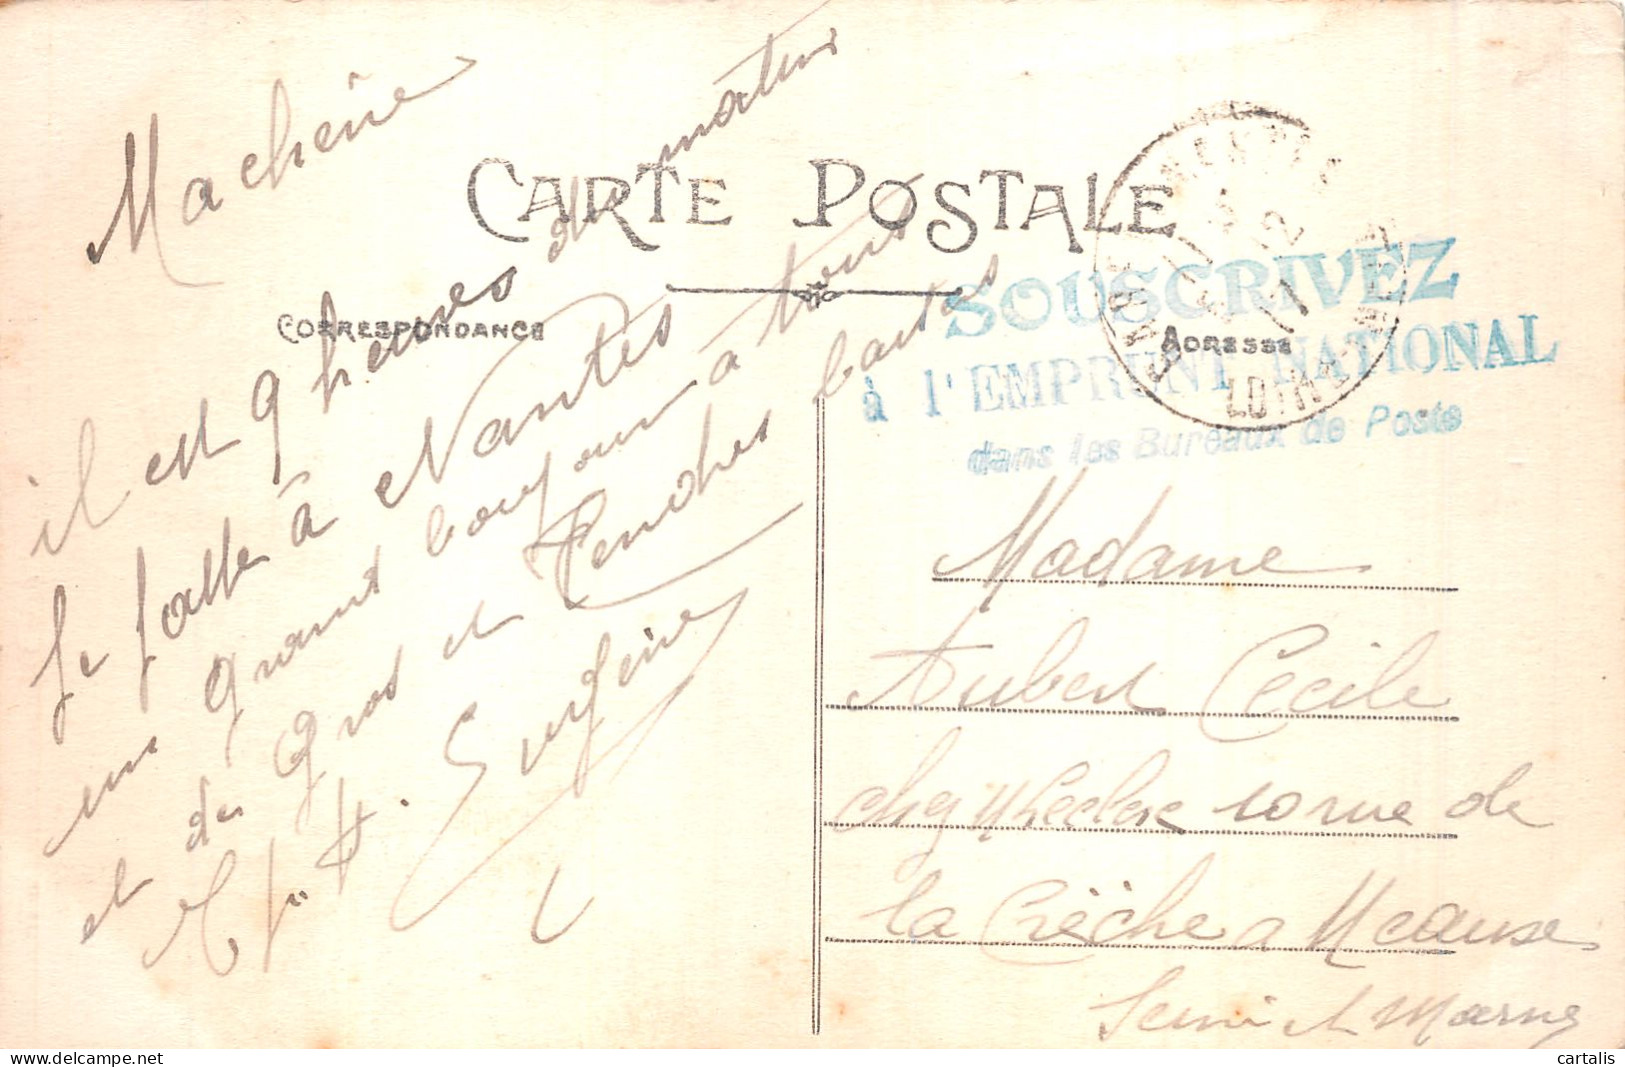 CARTE POSTALE
CORRESPONDANCE
ADRESSE
SOUSCRIVEZ
à l'EMPRUNT NATIONAL
dans les Bureaux de Poste
Ma cherie
il est 9 heures du matin
Je
à Nantes
un grand bonjour à tous
et des Gros et Tendres baisers
Eugène
Madame
Aubert Cécile
chez Leclerc 10 rue de
la Crèche a Meause
Seine et Marne
cartalis